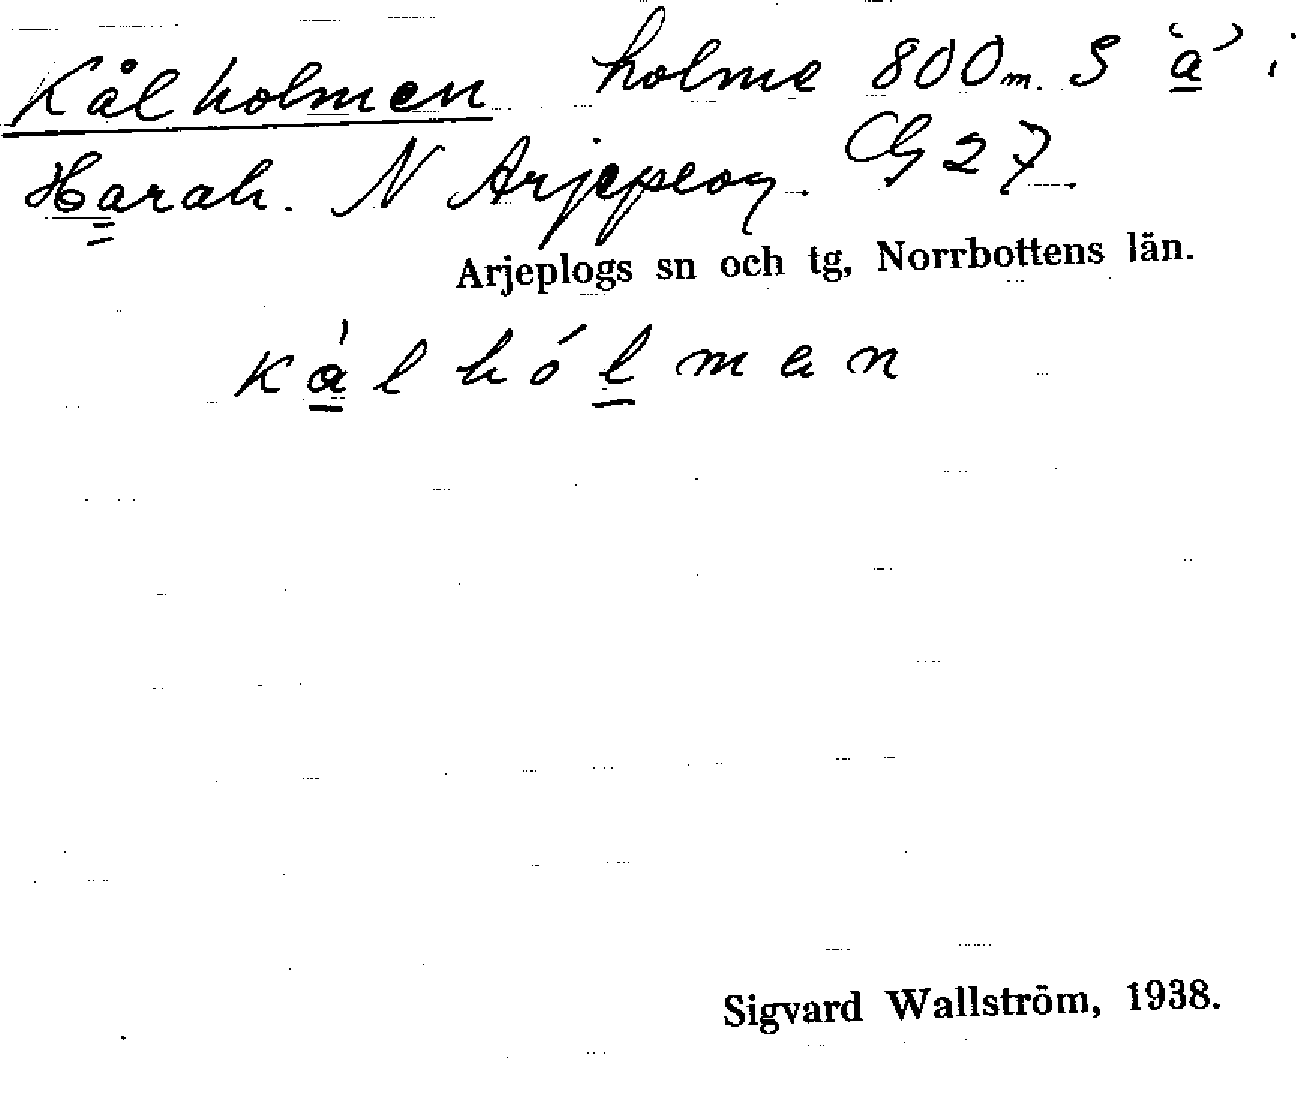 Kålholmen holme 800 m. S 'a' i
Harah. N Arjeplog. G 27
Arjeplogs sn och tg, Norrbottens län.
kálhólmen
Sigvard Wallström, 1938.